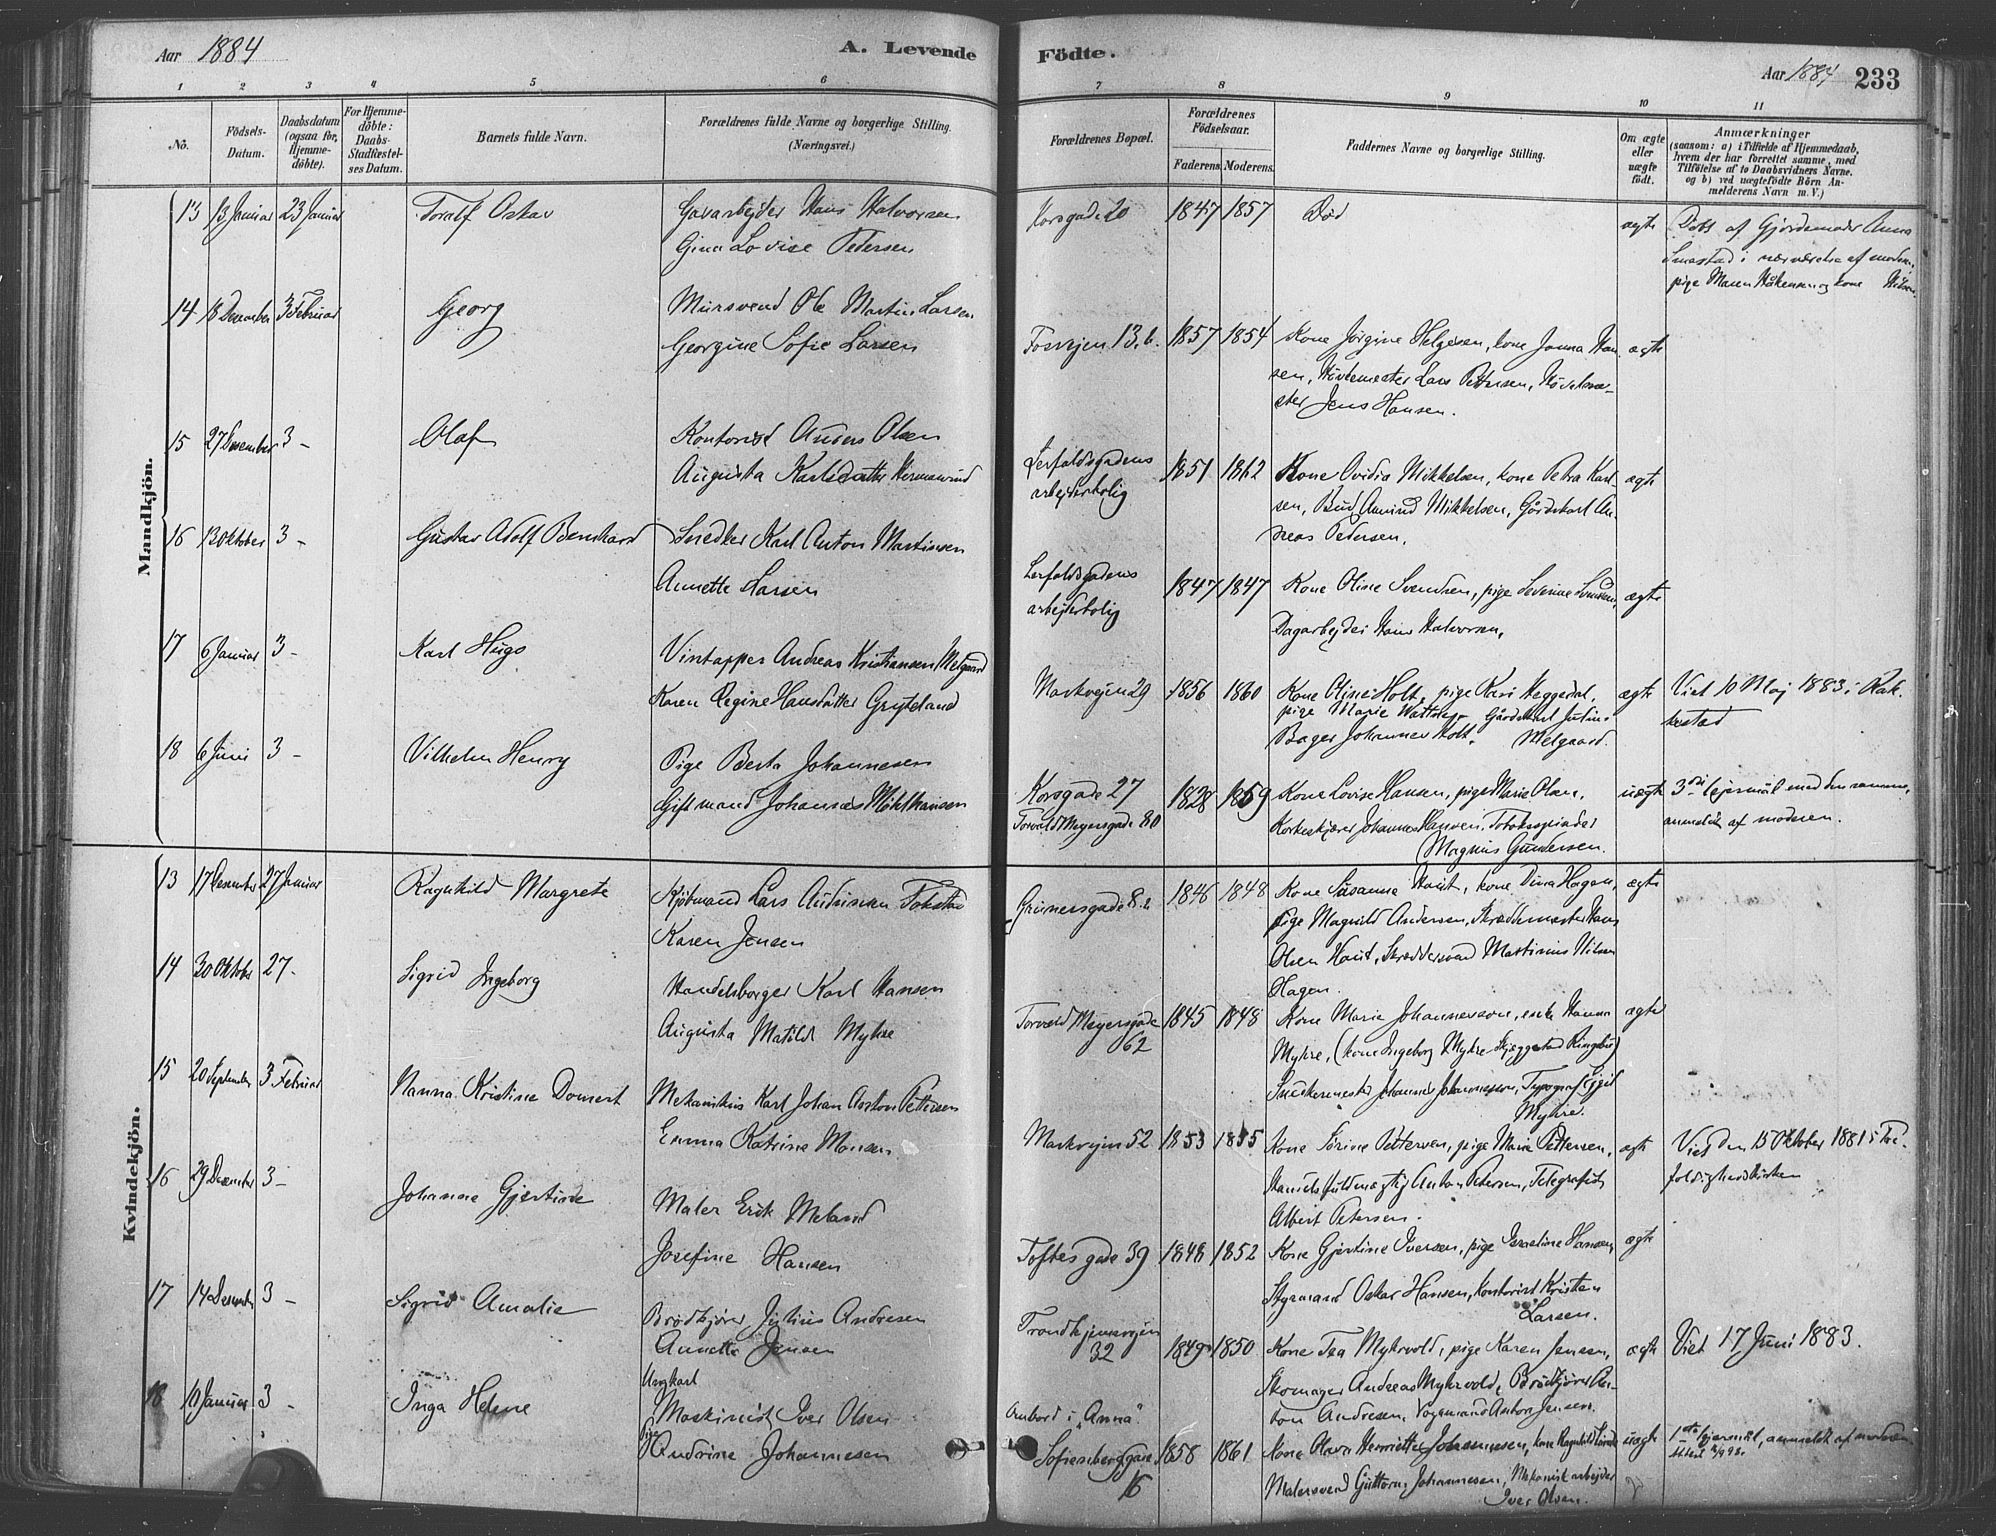 Aar 1884
A. Levende
Födte.
Aar 1884 233
1 2 3 4 5 6 7 8 9 10 11
No.
Födsels-
Datum.
Daabsdatum
(ogsaa for
Hjemme-
döbte).
For Hjemme-
döbte:
Daabs-
Stadfæstel-
ses Datum.
Barnets fulde Navn.
Forældrenes fulde Navne og borgerlige Stilling.
(Næringsvei.)
Forældrenes Bopæl.
Forældrenes
Födselsaar.
Faderens. Moderens.
Faddernes Navne og borgerlige Stilling.
Om ægte
eller
uægte
født.
Anmærkninger
(saasom: a) i Tilfælde af Hjemmedaab,
hvem der har forrettet samme, med
Tilföielse af to Daabsvidners Navne.
og b) ved uægtefödte Börn An-
melderens Navn m. V.)
Mandkjön.
13 13 Januar 23 Januar Toralf Oskar Garvarbejder Hans Halvorsen
Gina Lovise Petersen
Korsgade 20 1847 1857 Død ægte Døbt af Gjordemoder Anna
Smestad i nærværelse af moderen,
pige Maren Håkensen og kone Nilsen.
14 18 Desember 3 Februar Georg Mursvend Ole Martin Larsen
Georgine Sofie Larsen
Fossvejen 13,b. 1857 1854 Kone Jørgine Helgesen, kone Janna Han-
sen, Lars Pettersen,
Jens Hansen.
ægte
15 27 Desember 3 - Olaf Kontorist Anders Olsen
Augusta Karlsdatter
Lerfoldsgadens
arbejderbolig
1851 1862 Kone Ovidia Mikkelsen, kone Petra Karl-
sen, Bud Amund Mikkelsen, Gårdskarl An-
dreas Pedersen.
ægte
16 13 Oktober 3 - Gustav Adolf Bernhard Snedker Karl Anton Martinsen
Annette Larsen
Lerfoldsgadens
arbejderbolig
1847 1847 Kone Oline Svendsen, pige Severine Svendsen,
Dagarbejder Hans Halvorsen.
ægte
17 6 Januar 3 - Karl Hugo Vintapper Andreas Kristiansen Melgaard
Karen Regine Hansdatter Gryteland
Markvejen 29 1856 1860 Kone Oline Holt, pige Kari Heggedal,
pige Marie Gårdskarl Julius
Bager Johannes Holt. Melgaard.
ægte Viet 10 Maj 1883 i Rak-
kestad
18 6 Juni 3 - Vilhelm Henry Pige Berta Johannesen
Giftmand Johannes Mühlhausen
Korsgade 27
Torvald Meyersgade 80
1828 1859 Kone Lovise Hansen, pige Marie Olsen,
Korkeskjærer Johannes Hansen, Tobaksspinder
Magnus Gundersen.
uægte 3die lejermål med den samme,
anmeldt af moderen.
Kvindekjön.
13 17 Desember 27 Januar Ragnhild Margrete Kjøbmand Lars Andersen Tokstad
Karen Jensen
Grünersgade 8. 1846 1848 Kone Susanna Haut, kone Dina Hagen,
pige Magnild Andersen, Skræddermester Hans
Olsen Haut, Skræddersvend Martinius Nilsen
Hagen.
ægte
14 30 Oktober 27 - Sigrid Ingeborg Handelsborger Karl Hansen
Augusta Matild Myhre
Torvald Meyersgade
62
1845 1848 Kone Marie Johannesson, enke Hanna
Myhre, (kone Ingeborg Myhre Skjæggestad Ringebu)
Snedkermester Johannes Johannesson, Typograf Egil
Myhre.
ægte
15 20 September 3 Februar Nanna Kristine Domert Mekanikus Karl Johan Anton Pettersen
Emma Katrine Monsen
Markvejen 52 1853 1855 Kone Sørine Pettersen, pige Marie Pettersen,
Handelsfuldmægtig Anton Petersen, Telegrafist
Albert Petersen.
ægte Viet den 15 Oktober 1881 i Tre-
foldighedskirken
16 29 Desember 3 - Johanne Gjertine Maler Erik Meland
Josefine Hansen
Toftes gade 39 1848 1852 Kone Gjertine Iversen, pige Israeline Hansen,
Styrmand Oskar Hansen, kontorist Kristen
Larsen.
ægte
17 14 Desember 3 - Sigrid Amalie Brødkjører Julius Andresen
Annette Jensen
Trondhjemsvejen
32
1849 1850 Kone Tea Myhrvold, pige Karen Jensen,
Skomager Andreas Myhrvold, Brødkjører An-
ton Andresen, Vognmand Anton Jensen.
ægte Viet 17 Juni 1883.
18 10 Januar 3 - Inga Helene Ungkarl
Maskinist Iver Olsen
Pige Andrine Johannesen
Ombord i „Anna".
Sofienberggade
16
1858 1861 Kone Olava Henriette Johannesen, kone Ragnhild
Malersvend Guttorm Johannesen, Mekanisk arbejder
Iver Olsen.
uægte 1ste lejermål, anmeldt af moderen